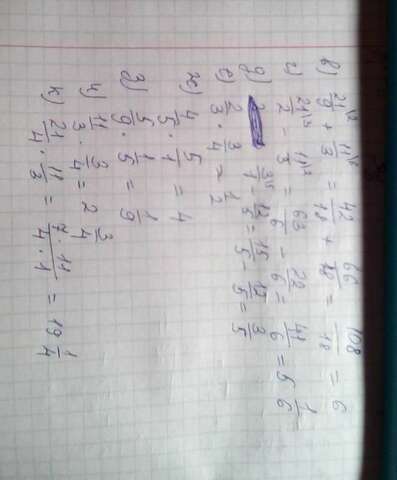 в) 21/9 \2 + 11/3 \6 = 42/18 + 66/18 = 108/18 = 6
г) 21/2 \3 - 11/3 \2 = 63/6 - 22/6 = 41/6 = 5 1/6
д) 3/1 \5 - 12/5 = 15/5 - 12/5 = 3/5
е) 2/3 · 3/4 = 1/2
ж) 4/5 · 5/1 = 4
з) 5/9 · 1/5 = 1/9
и) 11/3 · 3/4 = 2 3/4
к) 21/4 · 11/3 = 7·11/4·1 = 19 1/4